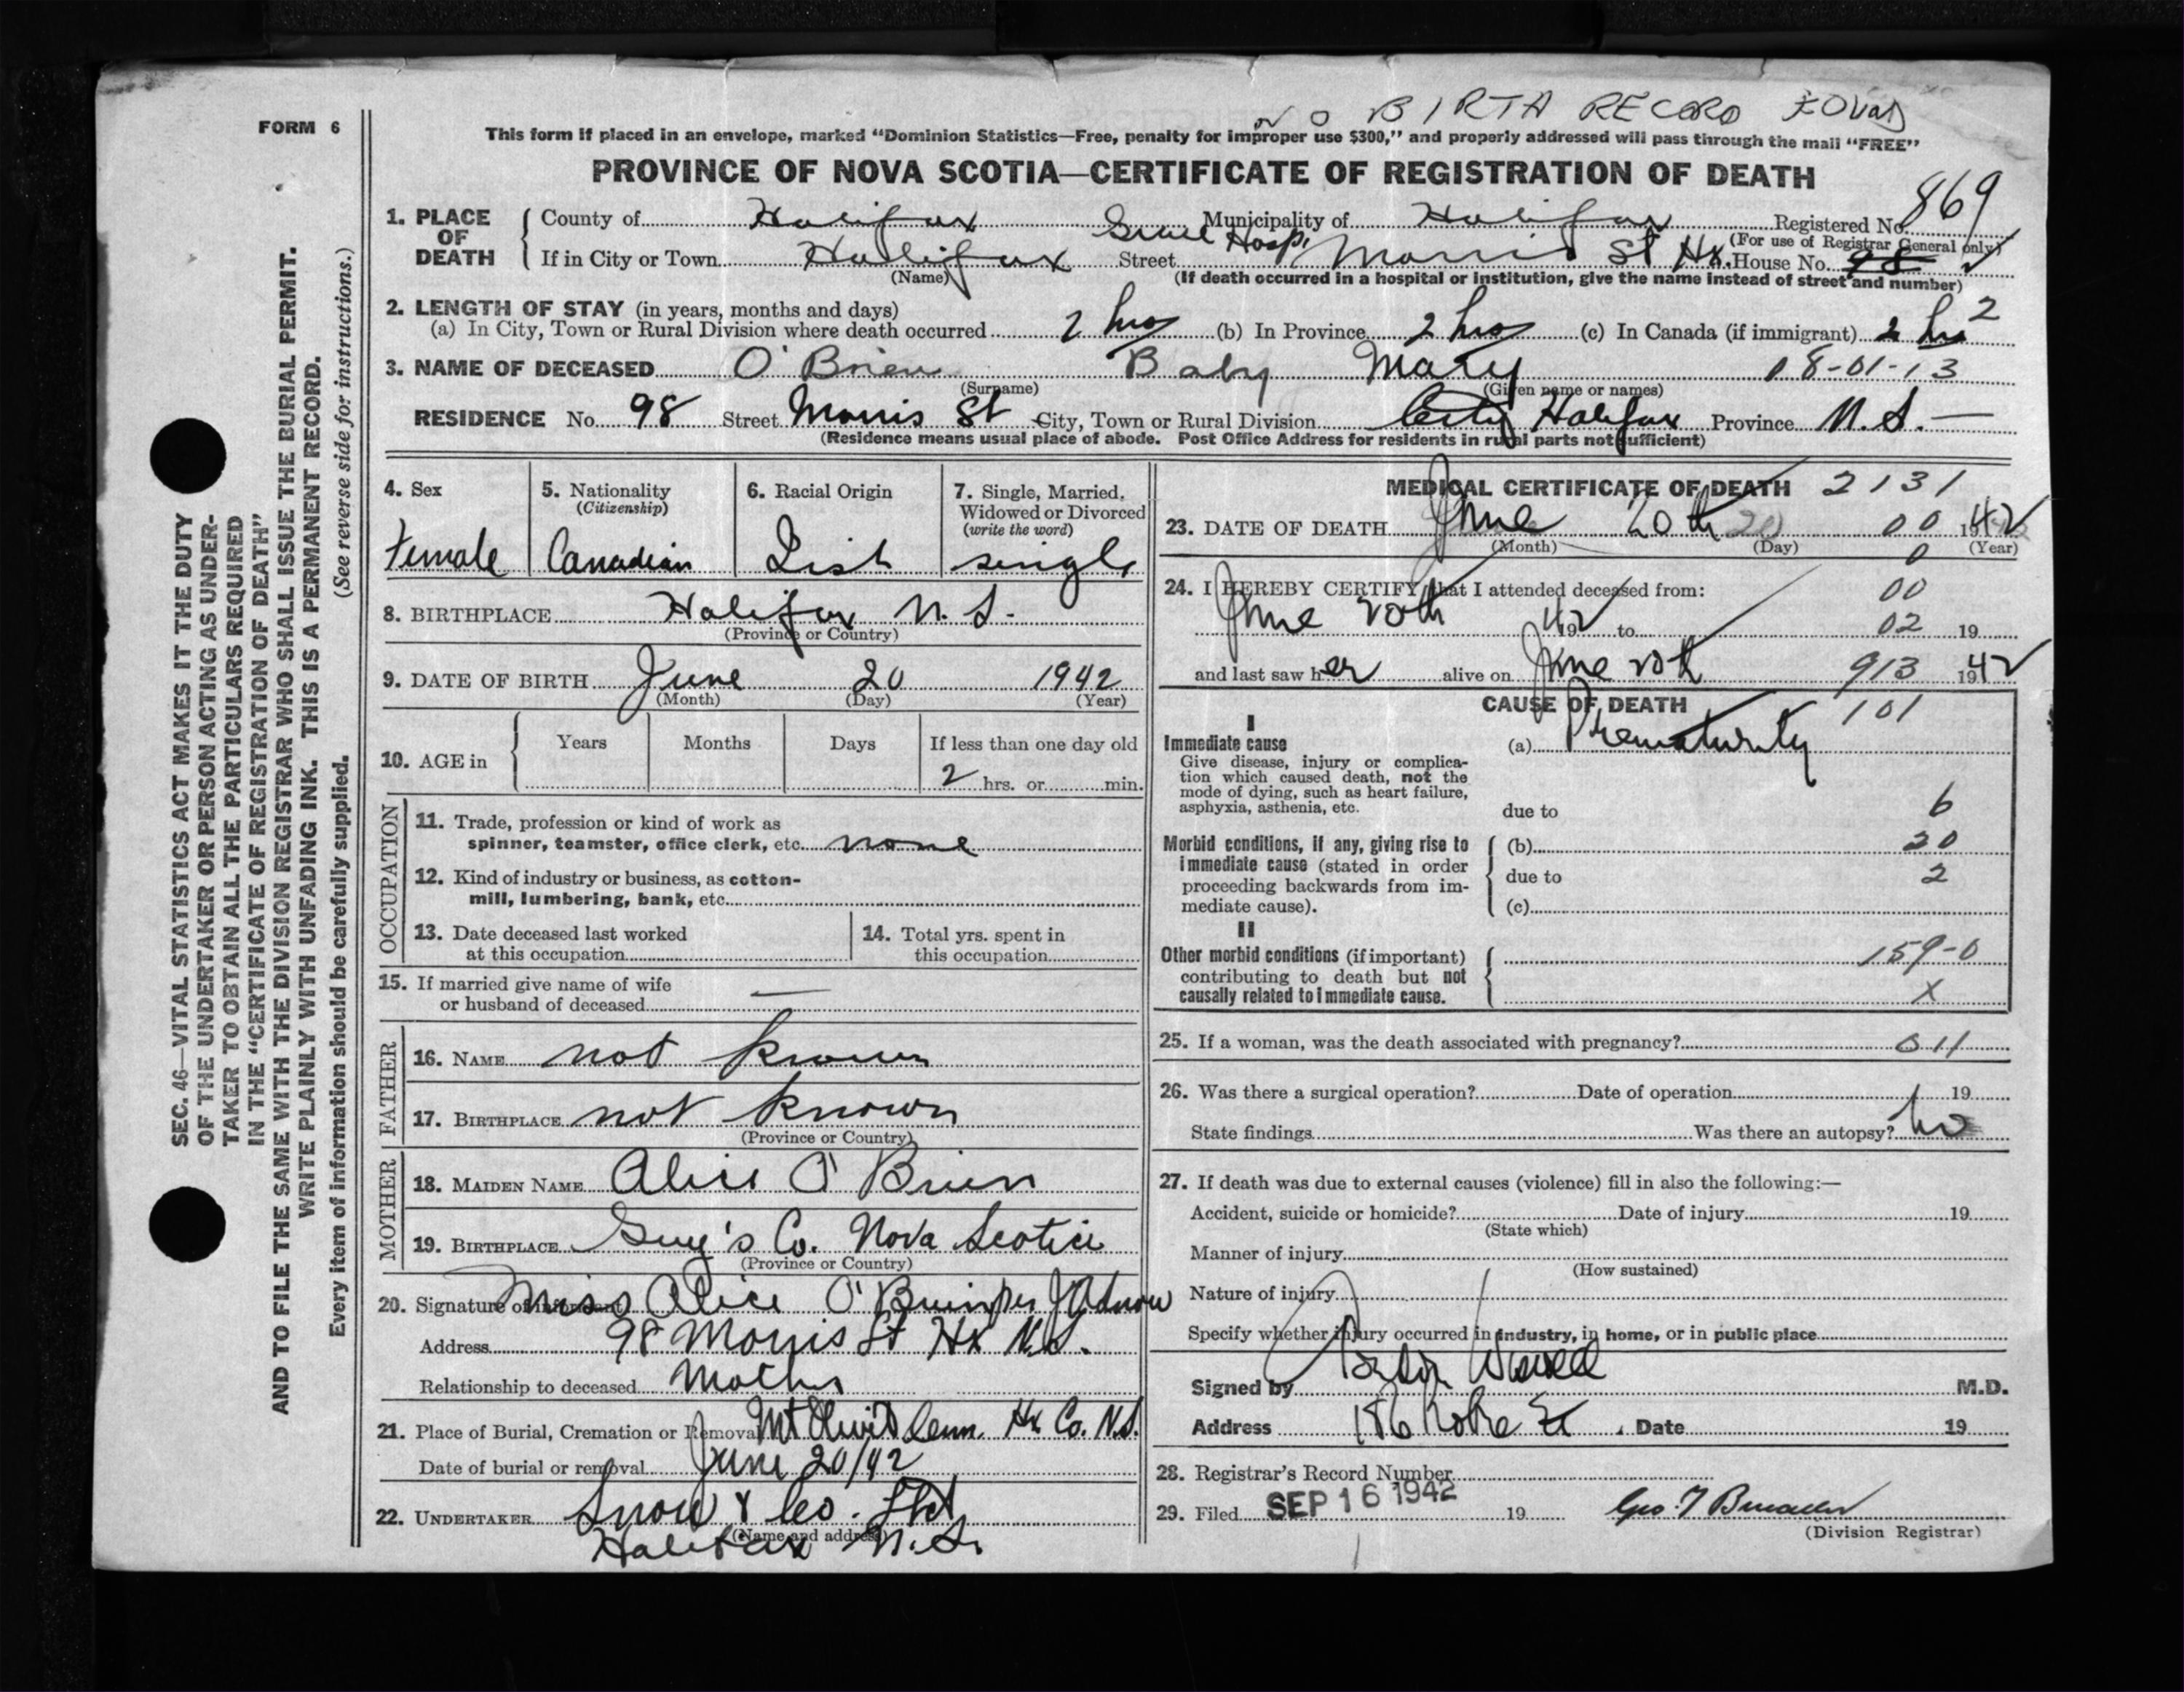 NO BIRTH RECORD FOUND
FORM 6
This form if placed in an envelope, marked "Dominion Statistics—Free, penalty for improper use $300," and properly addressed will pass through the mail "FREE"
PROVINCE OF NOVA SCOTIA—CERTIFICATE OF REGISTRATION OF DEATH
869
1. PLACE OF DEATH County of Halifax Municipality of Halifax Registered No.
(For use of Registrar General only)
If in City or Town Halifax Street Grace Hosp. Morris St Hx. House No. 98
(Name) (If death occurred in a hospital or institution, give the name instead of street and number)
2. LENGTH OF STAY (in years, months and days)
(a) In City, Town or Rural Division where death occurred 2 hrs (b) In Province 2 hrs (c) In Canada (if immigrant) 2 hrs 2
3. NAME OF DECEASED O'Brien Baby Mary 08-01-13
(Surname) (Given name or names)
RESIDENCE No. 98 Street Morris St City, Town or Rural Division City Halifax Province N.S.—
(Residence means usual place of abode. Post Office Address for residents in rural parts not sufficient)
4. Sex
Female
5. Nationality
(Citizenship)
Canadian
6. Racial Origin
Irish
7. Single, Married,
Widowed or Divorced
(write the word)
single
8. BIRTHPLACE Halifax N.S.
(Province or Country)
9. DATE OF BIRTH June 20 1942
(Month) (Day) (Year)
10. AGE in Years Months Days If less than one day old
2 hrs. or min.
OCCUPATION
11. Trade, profession or kind of work as
spinner, teamster, office clerk, etc. none
12. Kind of industry or business, as cotton-
mill, lumbering, bank, etc.
13. Date deceased last worked
at this occupation
14. Total yrs. spent in
this occupation
15. If married give name of wife
or husband of deceased —
FATHER
16. NAME not known
17. BIRTHPLACE not known
(Province or Country)
MOTHER
18. MAIDEN NAME Alice O'Brien
19. BIRTHPLACE Guy's Co. Nova Scotia
(Province or Country)
20. Signature of informant Miss Alice O'Brien per J A Snow
Address 98 Morris St Hx N.S.
Relationship to deceased Mother
21. Place of Burial, Cremation or Removal Mt Olivet Cem. Hx Co. N.S.
Date of burial or removal June 20/42
22. UNDERTAKER Snow & Co. Ltd
(Name and address)
Halifax N.S.
MEDICAL CERTIFICATE OF DEATH 2131
23. DATE OF DEATH June 20th 20 00 1942
(Month) (Day) (Year)
0
24. I HEREBY CERTIFY that I attended deceased from: 00
June 20th 1942 to 02 19
and last saw her alive on June 20th 913 1942
CAUSE OF DEATH 101
I
Immediate cause (a) Prematurity
Give disease, injury or complica-
tion which caused death, not the
mode of dying, such as heart failure,
asphyxia, asthenia, etc.
due to 6
Morbid conditions, if any, giving rise to
immediate cause (stated in order
proceeding backwards from im-
mediate cause).
(b) 20
due to 2
(c)
II
Other morbid conditions (if important)
contributing to death but not
causally related to immediate cause.
159-0
X
25. If a woman, was the death associated with pregnancy? 011
26. Was there a surgical operation? Date of operation 19
State findings Was there an autopsy? no
27. If death was due to external causes (violence) fill in also the following:—
Accident, suicide or homicide? Date of injury 19
(State which)
Manner of injury
(How sustained)
Nature of injury
Specify whether injury occurred in industry, in home, or in public place
Signed by M.D.
Address 186 Date 19
28. Registrar's Record Number
29. Filed SEP 16 1942 19 Geo. F
(Division Registrar)
SEC. 46—VITAL STATISTICS ACT MAKES IT THE DUTY
OF THE UNDERTAKER OR PERSON ACTING AS UNDER-
TAKER TO OBTAIN ALL THE PARTICULARS REQUIRED
IN THE "CERTIFICATE OF REGISTRATION OF DEATH"
AND TO FILE THE SAME WITH THE DIVISION REGISTRAR WHO SHALL ISSUE THE BURIAL PERMIT.
WRITE PLAINLY WITH UNFADING INK. THIS IS A PERMANENT RECORD.
Every item of information should be carefully supplied. (See reverse side for instructions.)